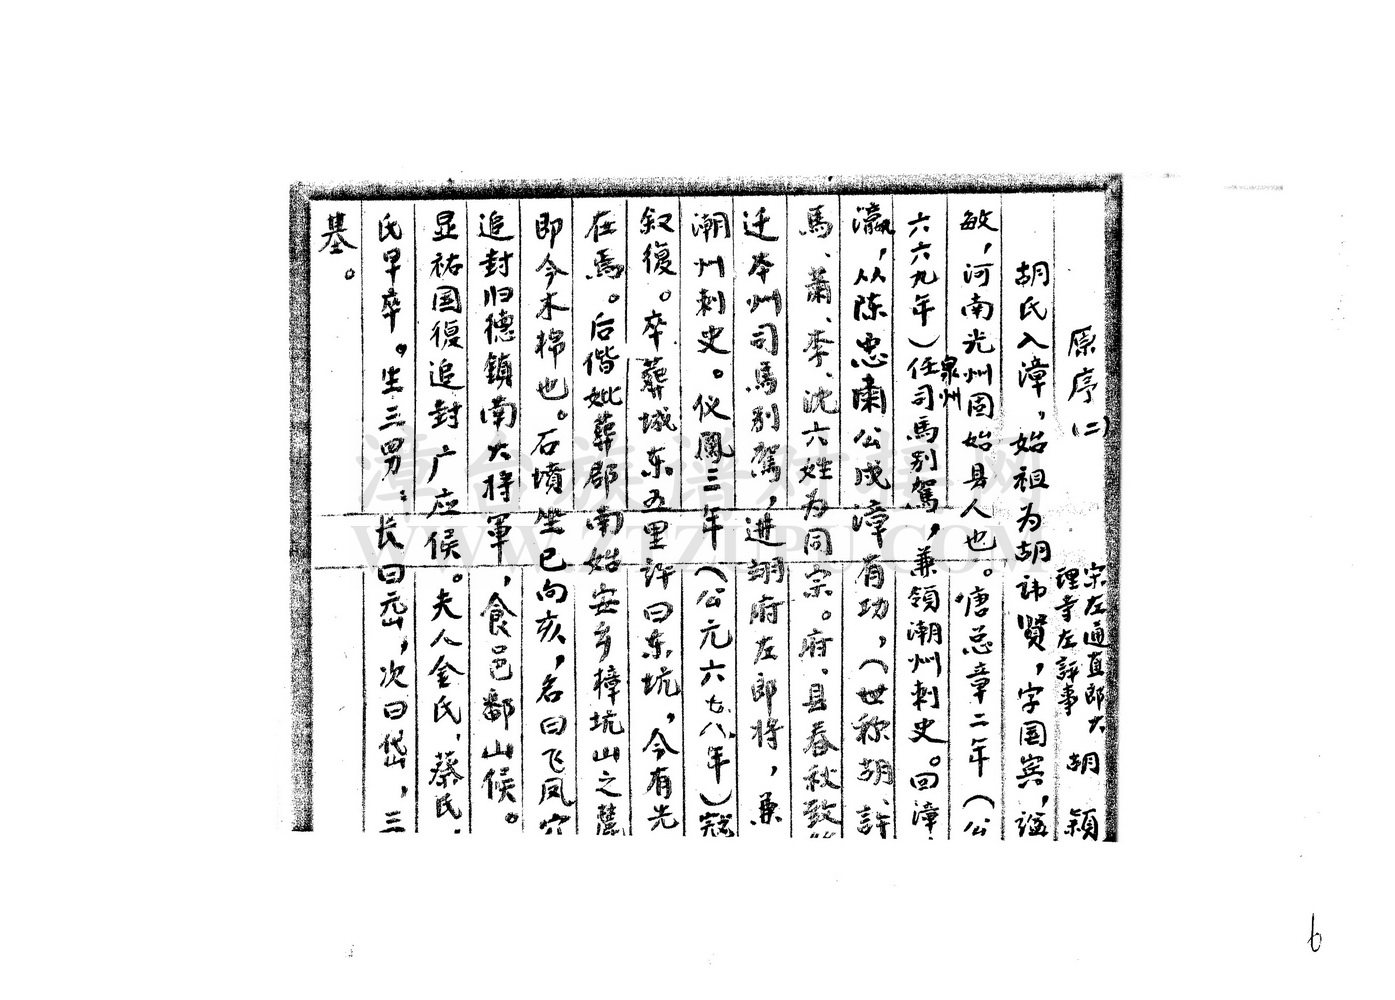 原序(二)
宗左通直郎大
理寺左評事
胡 穎
胡氏入漳，始祖为胡讳贤，字国宾，谥
敏，河南光州固始县人也。唐总章二年（公
六六九年）任泉州司馬别駕，兼領潮州刺史。回漳
瀛，从陈忠肅公戍漳有功，（世称胡、許
馬、萧、李、沈六姓为同宗。府、县春秋致
迁本州司馬别駕，进翊府左郎将，兼
潮州刺史。仪鳳三年（公元六七八年）寇
叙復。卒葬城东五里許曰东坑，今有光
在焉。后偕妣葬郡南姑安乡樟坑山之麓
即今木棉也。石墳坐巳向亥，名曰飞凤穴
追封归德镇南大将軍，食邑鄱山侯。
显祐国復追封广应侯。夫人金氏、蔡氏、
氏早卒。生三男：长曰，次曰岱，三
墓。
漳台族谱对接网
WWW.ZTZUPU.COM
6